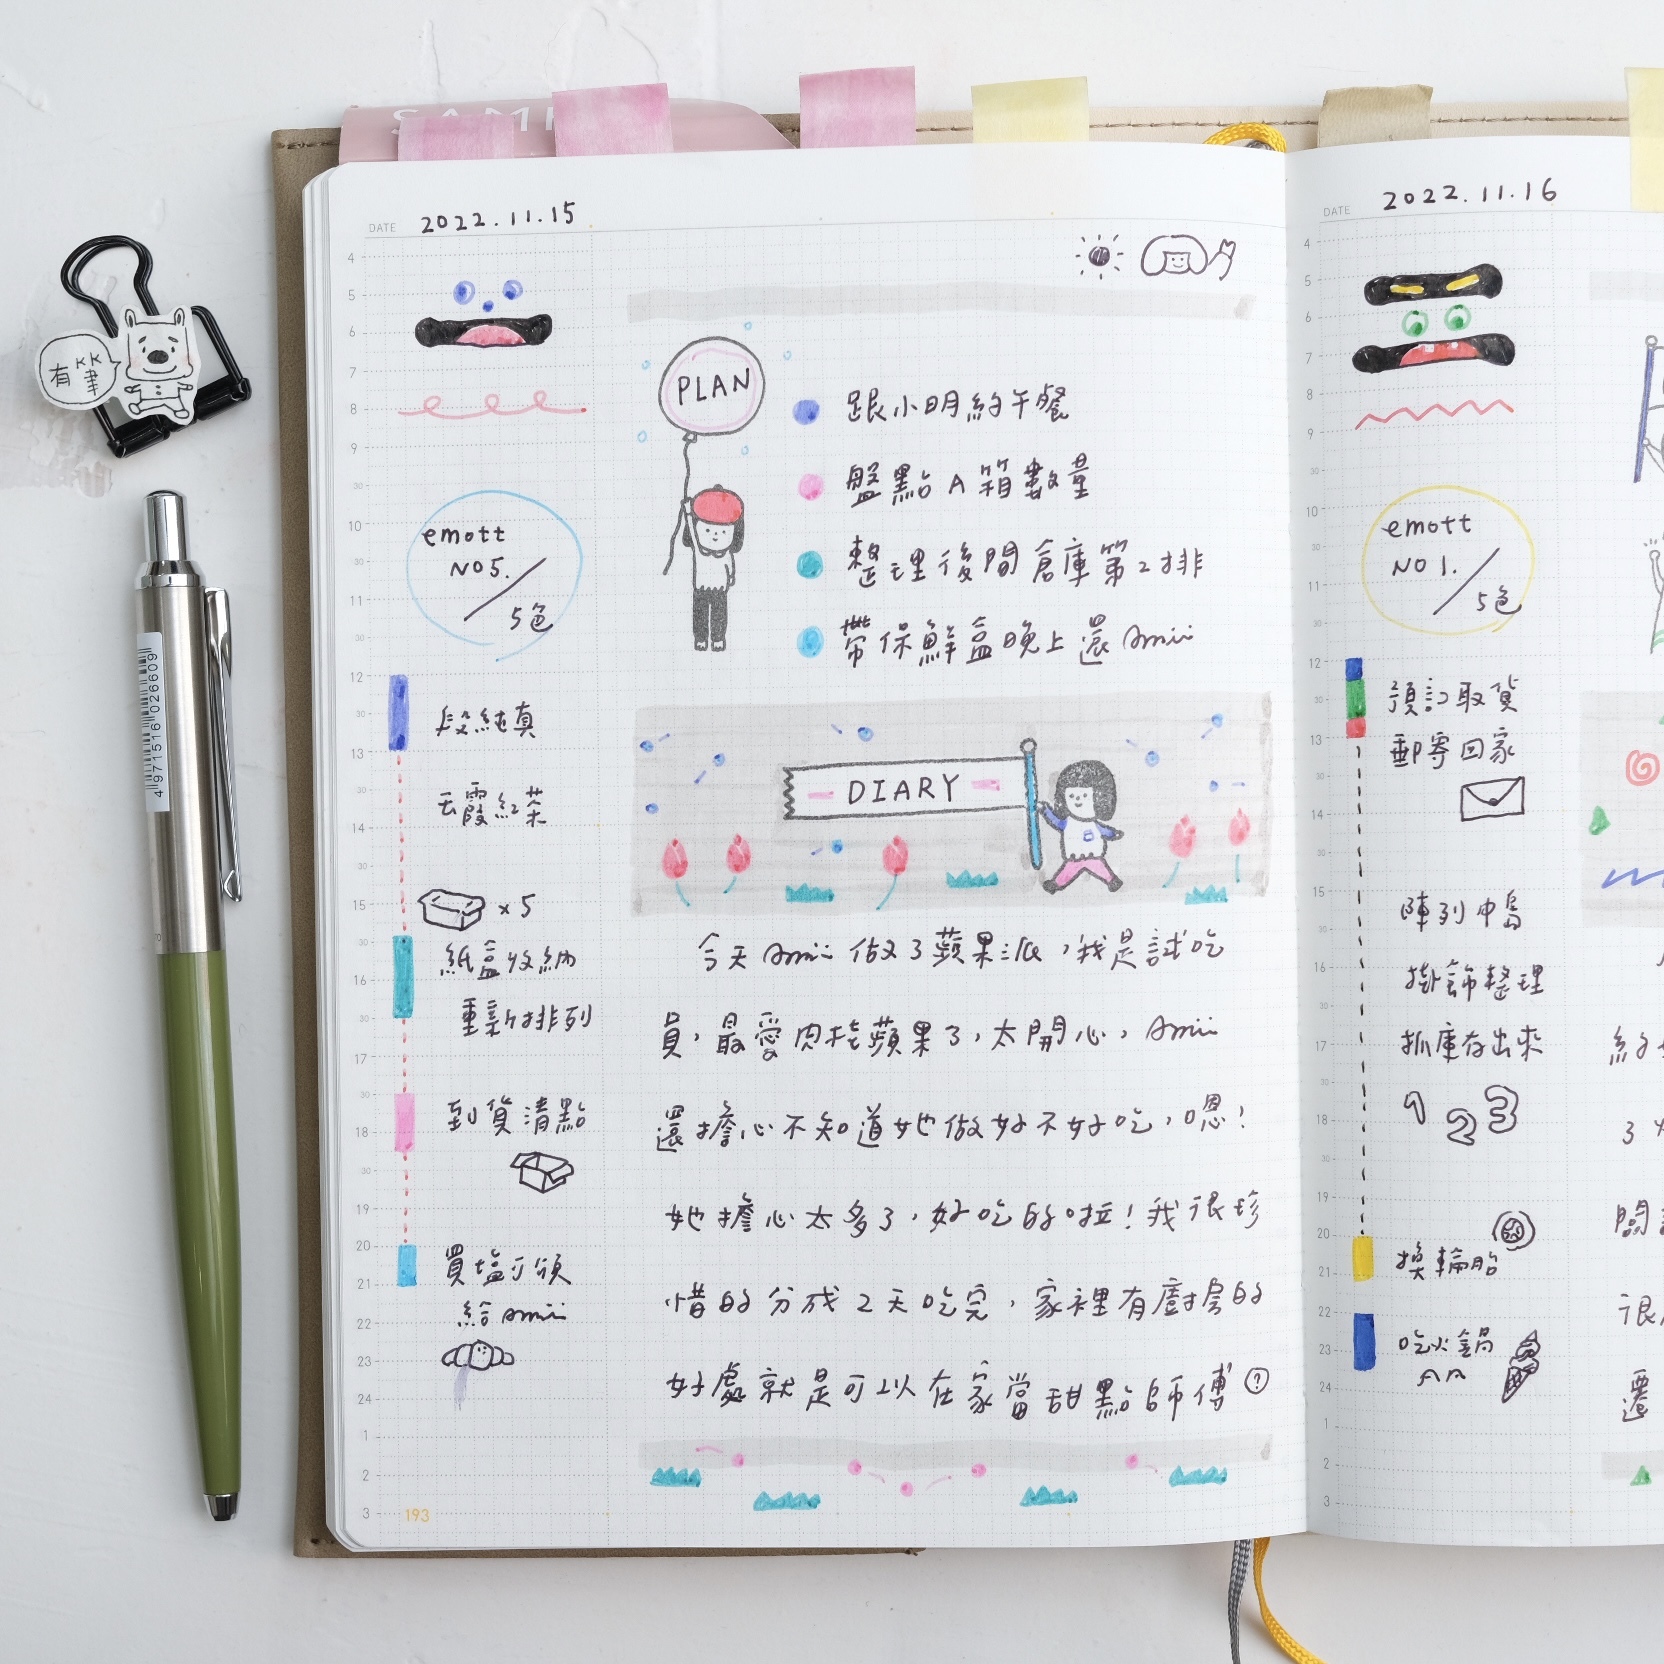 SAM
DATE 2022.11.15
4
5
6
7
8
9
30
10
30
11
30
12
30
13
30
14
30
15
30
16
30
17
30
18
30
19
20
21
22
23
24
1
2
3
193
emott
NO 5.
5色
段純真
雲霞紅茶
x 5
紙盒收納
重新排列
到貨清點
買塩可頌
給 Amii
PLAN
跟小明約午餐
盤點 A 箱數量
整理後間倉庫第2排
帶保鮮盒晚上還 Amii
DIARY
今天 Amii 做了蘋果派,我是試吃
員,最愛肉桂蘋果了,太開心,Amii
還擔心不知道她做好不好吃,嗯!
她擔心太多了,好吃的啦!我很珍
惜的分成2天吃完,家裡有廚房的
好處就是可以在家當甜點師傅?
DATE 2022.11.16
4
5
6
7
8
9
30
10
30
11
30
12
30
13
30
14
30
15
30
16
30
17
30
18
30
19
20
21
22
23
24
1
2
3
emott
NO 1.
5色
預訂取貨
郵寄回家
陣列中島
掛飾整理
抓庫存出來
1 2 3
換輪胎
吃火鍋
約
3
關
很
還
有
4 971516 026609